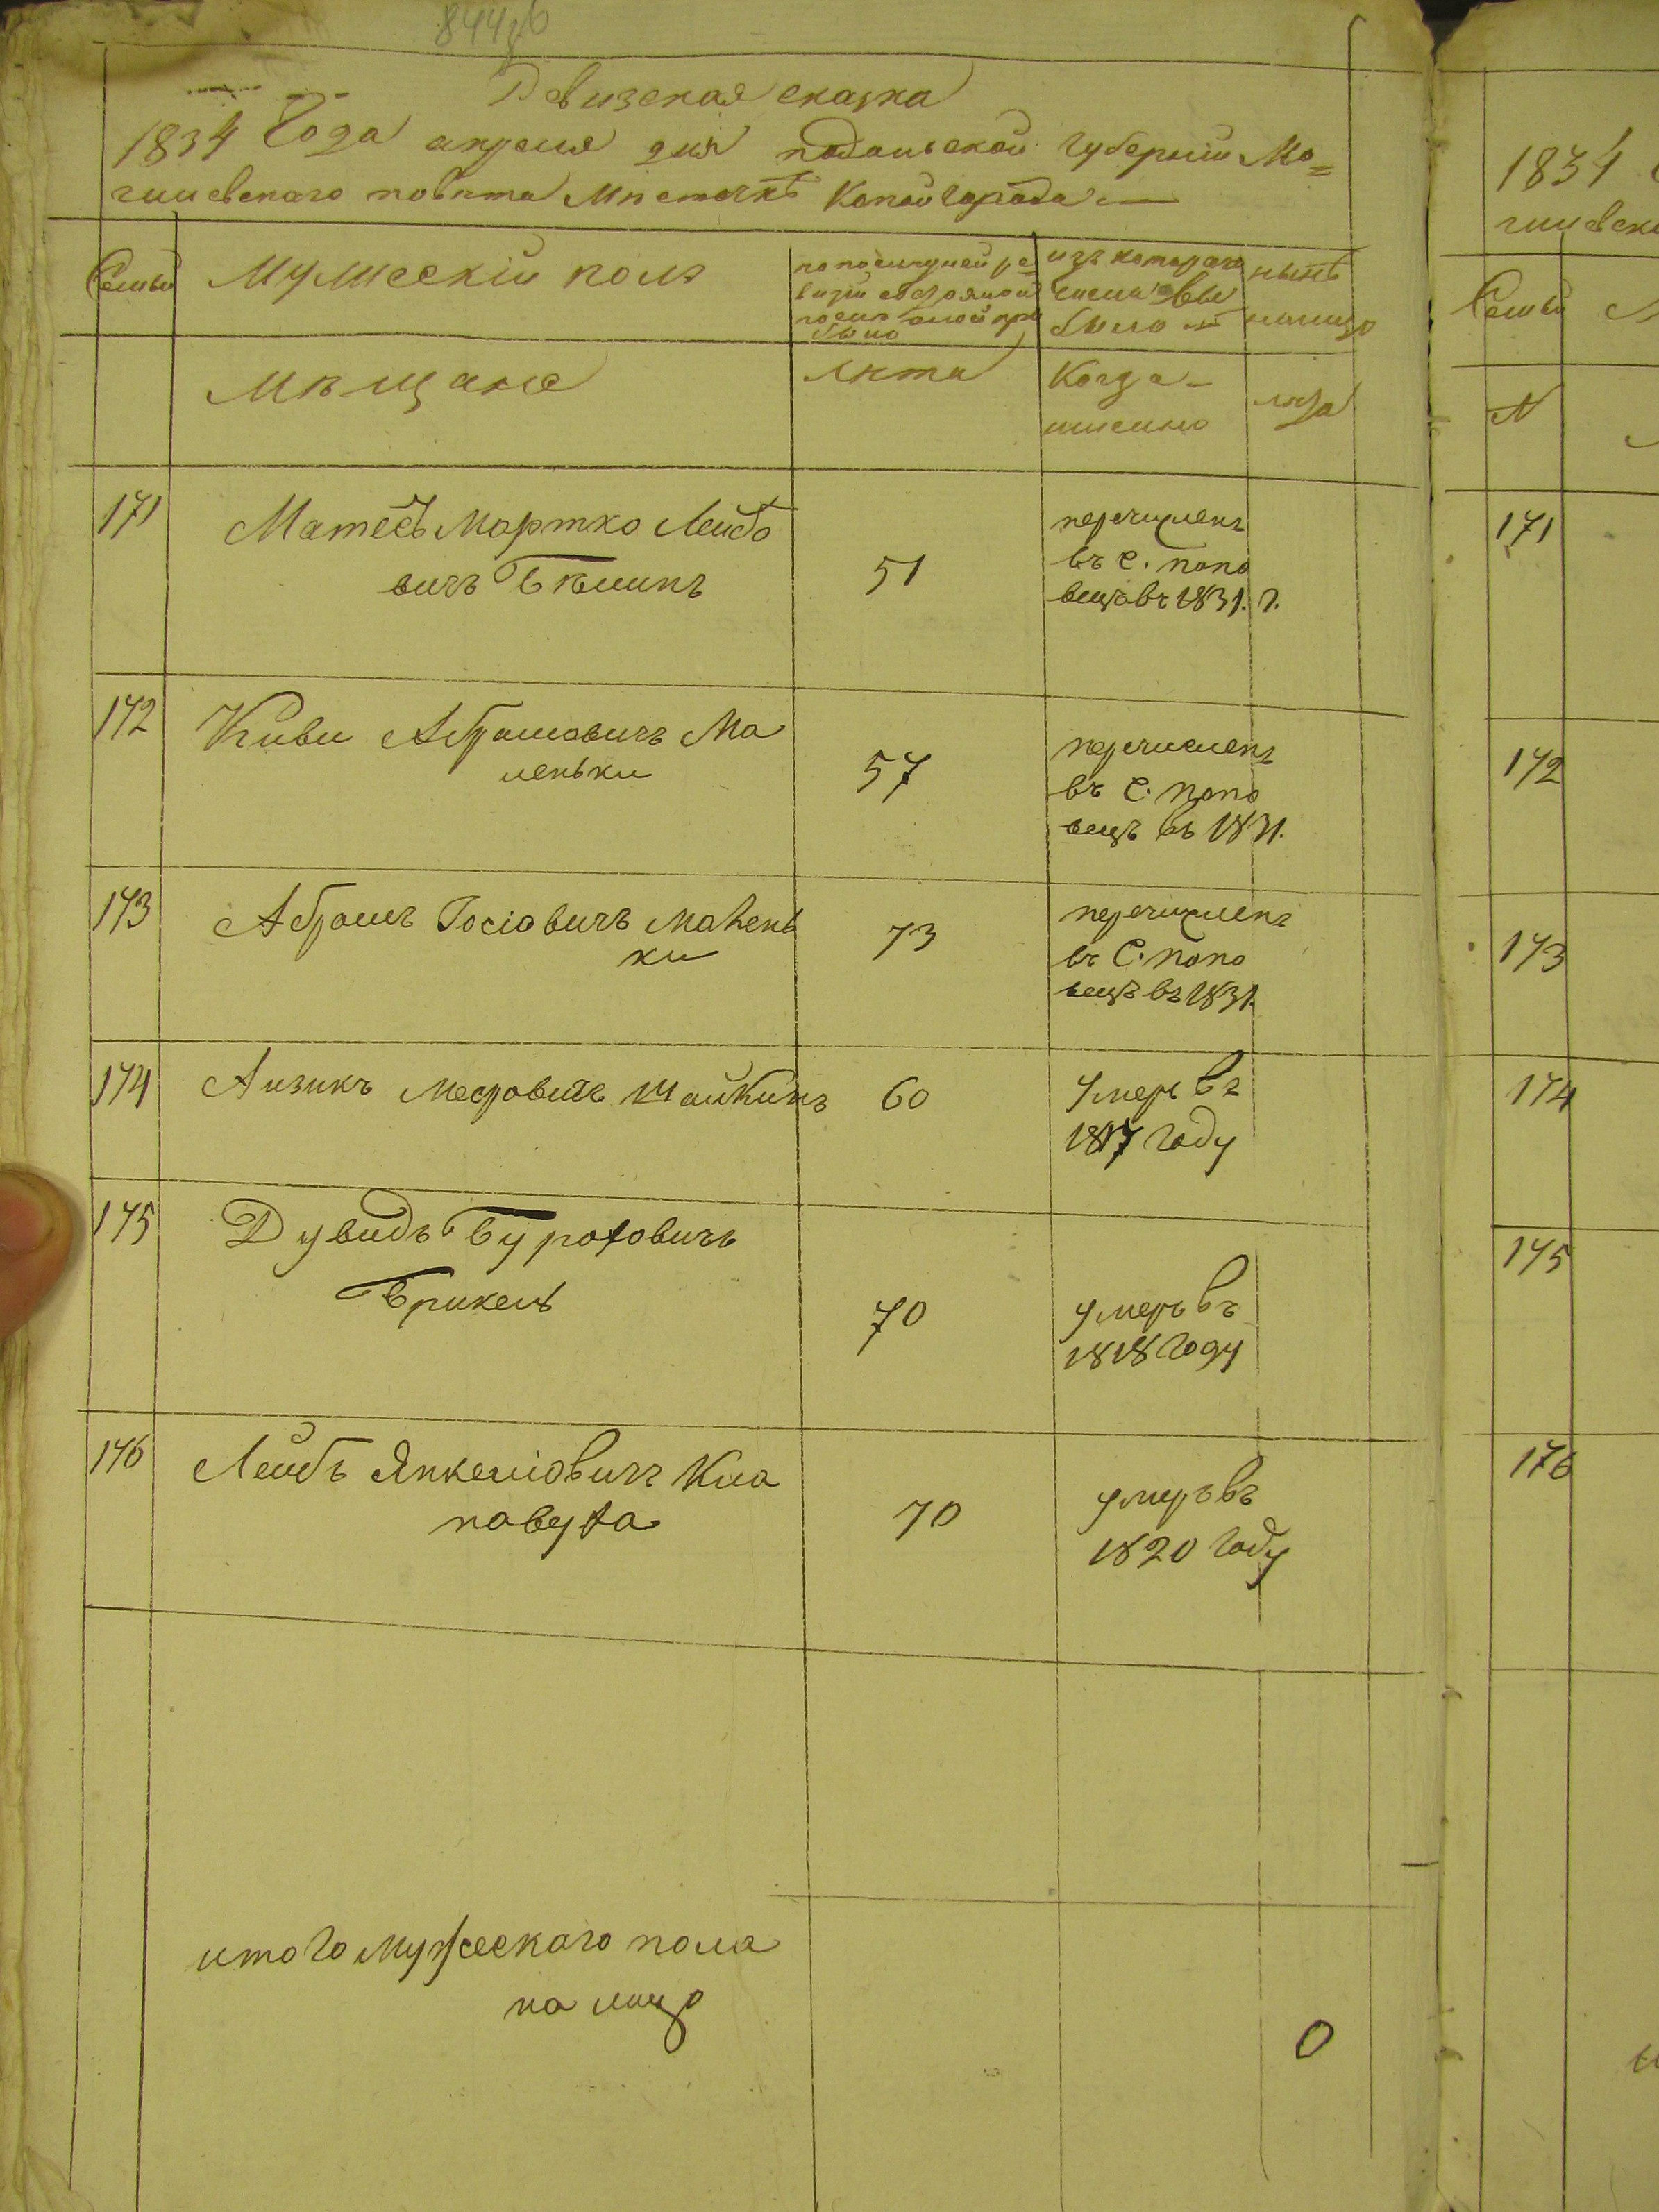 Ревизская сказка
1834 Года апреля дня подольской Губернии Мо=
гилевскаго повѣта Мѣстечкѣ Копайгорода
Семьи
Мужескiй полъ
по последней ре
визiи состояло и
после оной при
было
изъ котораго
числа вы
было
нынѣ
налицо
Мѣщане
Лѣта
Когда
именно
лѣта
171
Матесъ Мортко Лейбо
вичъ
51
перечисленъ
въ С. попо
вецъ въ 1831. г.
172
Киви Абрамовичъ Ма
леньки
57
перечисленъ
въ С. попо
вецъ въ 1831.
173
Абрамъ Iосiовичъ Малень
ки
73
перечисленъ
въ С. попо
вецъ въ 1831.
174
Аизикъ Мееровичъ Шайкинъ
60
Умеръ въ
1817 Году
175
Дувидъ Бурохович
Брикель
70
умеръ въ
1818 Году
176
Лейбъ Янкелiовичъ Кла
повуха
70
умеръ въ
1820 Году
итого мужескаго пола
на лицо
0
1834
Семьи
N
171
172
173
174
175
176